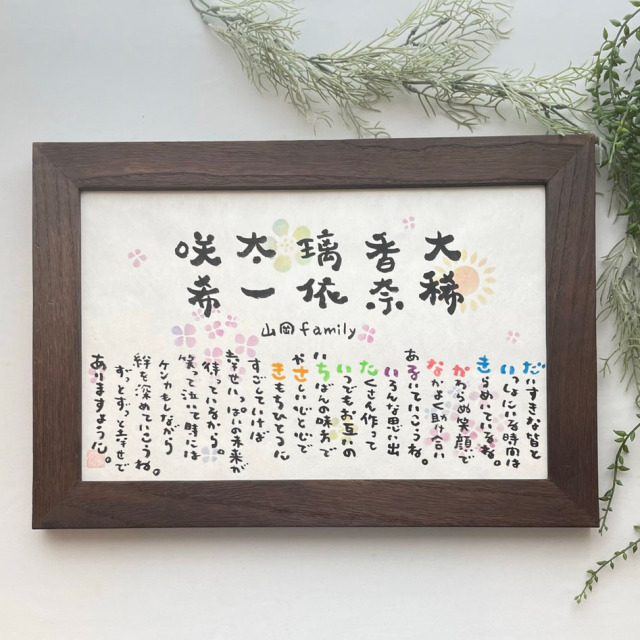 大稀
香奈
璃依
太一
咲希
山岡family
だいすきな皆と
いっしょにいる時間は
きらめいているね。
かわらぬ笑顔で
なかよく助け合い
あるいていこうね。
いろんな思い出
たくさん作って
いつでもお互いの
いちばんの味方で
やさしい心と心で
きもちひとつに
すごしていけば
幸せいっぱいの未来が
待っているから。
笑って泣いて時には
ケンカもしながら
絆を深めていこうね。
ずっとずっと幸せで
ありますように。